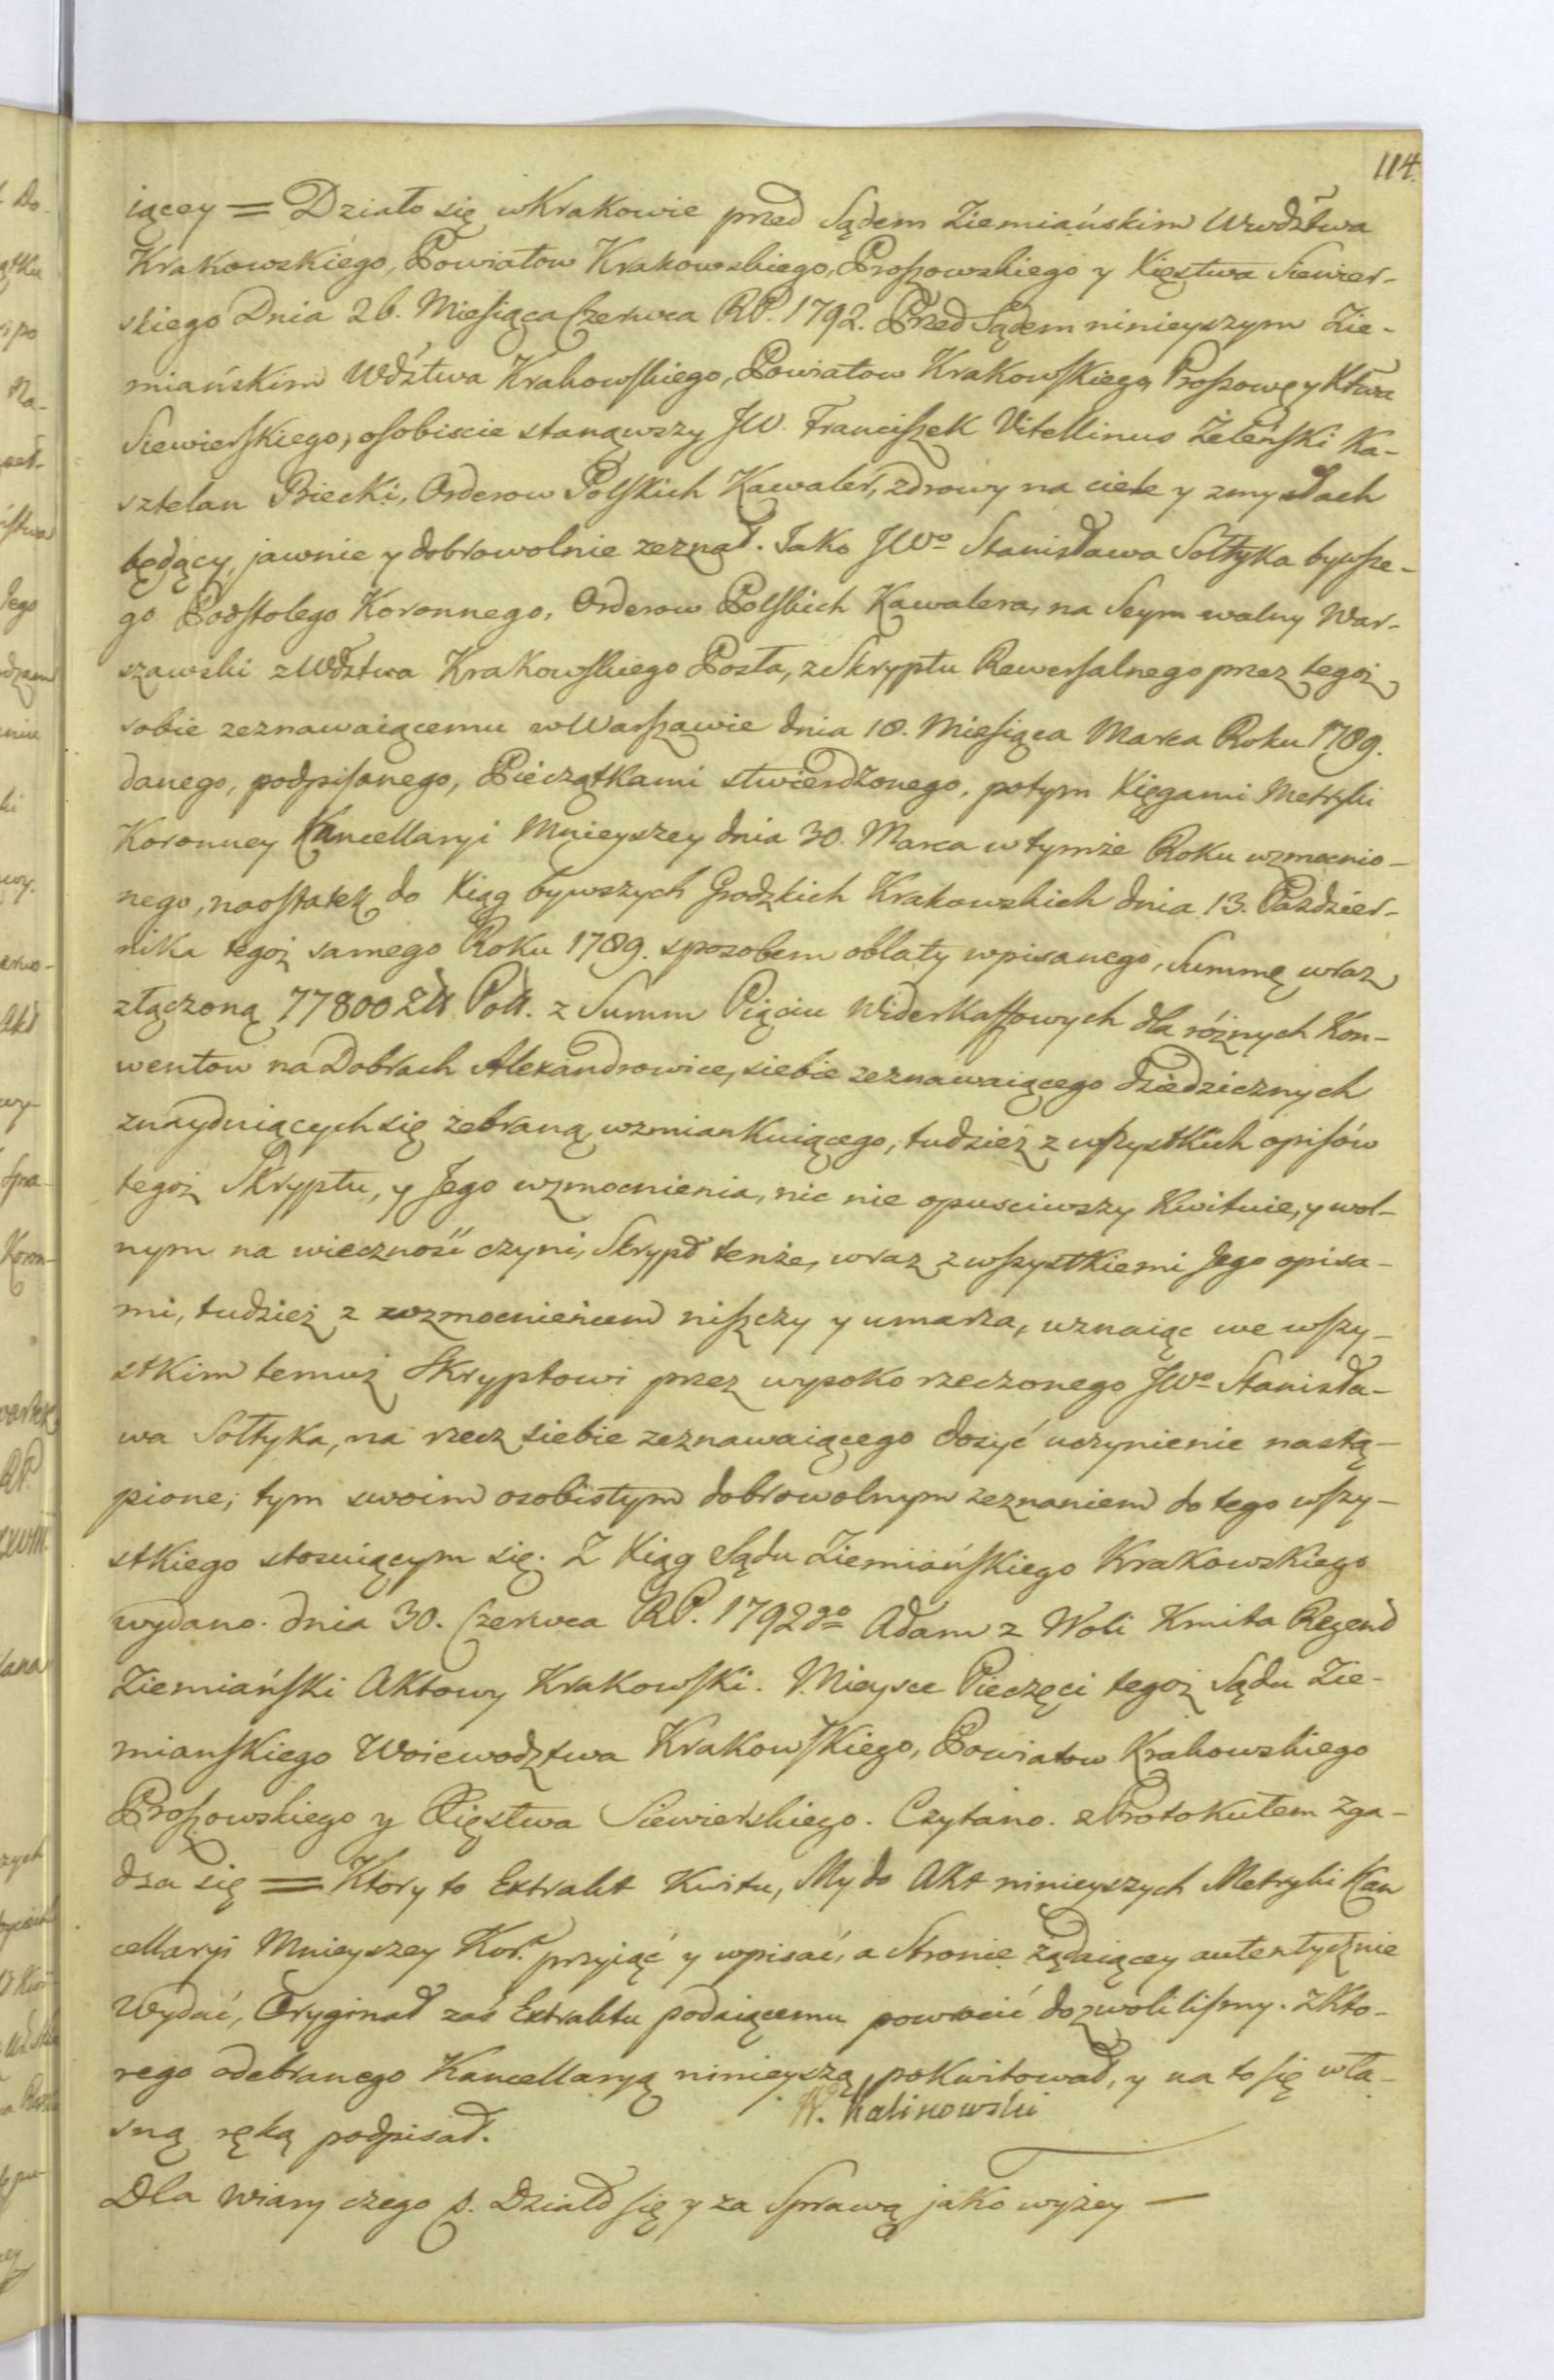 114.
iącey = Działo się w Krakowie przed Sądem Ziemiańskim Wwdztwa
Krakowskiego, Powiatow Krakowskiego, Proszowskiego y Xięstwa Siewier-
skiego Dnia 26. Miesiąca Czerwca RP. 1792. Przed Sądem ninieyszym Zie-
miańskim Wdztwa Krakowskiego, Powiatow Krakowskiego, Proszowᵍ y Xtwa
Siewierskiego, osobiscie stanąwszy JW. Franciszek Vitellinus Żeleński Ka-
sztelan Biecki, Orderow Polskich Kawaler, zdrowy na ciele y zmysłach
będący, jawnie y dobrowolnie zeznał. Jako JWº Stanisława Sołtyka bywsze-
go Podstolego Koronnego, Orderow Polskich Kawalera, na Seym walny War-
szawski z Wdztwa Krakowskiego Posła, z Skryptu Rewersalnego przez tegoż
sobie zeznawaiącemu w Warszawie dnia 18. Miesiąca Marca Roku 1789.
danego, podpisanego, Pieczątkami stwierdzonego, potym Xięgami Metryki
Koronney Kancellaryi Mnieyszey dnia 30. Marca w tymże Roku wzmocnio-
nego, naostatek do Xiąg bywszych Grodzkich Krakowskich dnia 13. Pazdzier-
nika tegoż samego Roku 1789. sposobem oblaty wpisanego, Summę wraz
złączoną 77800 Złł Poll. z Summ Pięciu Widerkaffowych dla różnych Kon-
wentow na Dobrach Alexandrowice, siebie zeznawaiącego dziedzicznych
znayduiących się zebraną wzmiankuiącego, tudzież z wszystkich opisów
tegoż Skryptu, y Jego wzmocnienia, nic nie opusciwszy kwituie, y wol-
nym na wieczność czyni, Skrypt tenże, wraz z wszystkiemi Jego opisa-
mi, tudzież z wzmocnieniem niszczy y umarza, uznaiąc we wszy-
stkim temuż Skryptowi przez wysoko rzeczonego JWº Stanisła-
wa Sołtyka, na rzecz siebie zeznawaiącego dosyć uczynienie nastą-
pione; tym swoim osobistym dobrowolnym zeznaniem do tego wszy-
stkiego stosuiącym się. Z Xiąg Sądu Ziemiańskiego Krakowskiego
wydano. dnia 30. Czerwca RP. 1792go Adam z Woli Kmita Regent
Ziemiański Aktowy Krakowski. Mieysce Pieczęci tegoż Sądu Zie-
mianskiego Woiewodztwa Krakowskiego, Powiatow Krakowskiego
Proszowskiego y Xięstwa Siewierskiego. Czytano. z Protokułem zga-
dza się = Ktory to Extrakt Kwitu, My do Akt ninieyszych Metryki Kan
cellaryi Mnieyszey Kor.ᵉ przyiąć y wpisać, a Stronie żądaiącey autentycznie
Wydać, Oryginał zaś Extraktu podaiącemu powrócić dozwolilismy. z Kto-
rego odebranego Kancellaryą ninieyszą pokwitował, y na to się wła-
sną ręką podpisał.
W. Kalinowski
Dla wiary czego p. Działo się y za Sprawą jako wyżey —